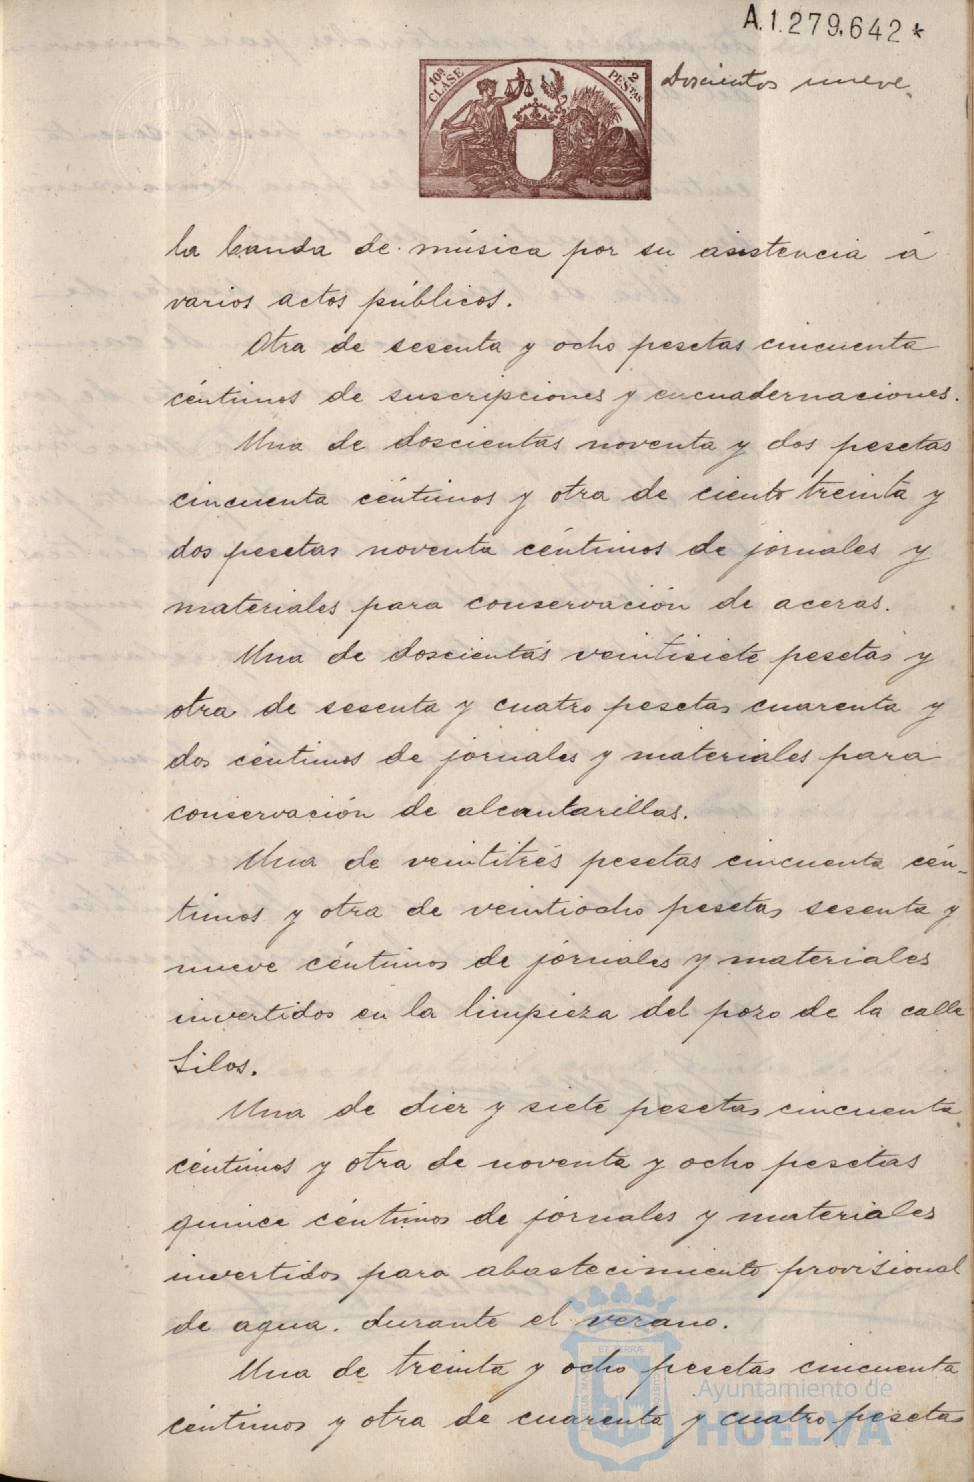 A.1.279,642*
10ª CLASE
2 PESTAS
Doscientos nueve.
la banda de música por su asistencia á
varios actos públicos.
Otra de sesenta y ocho pesetas cincuenta
céntimos de suscripciones y encuadernaciones.
Una de doscientas noventa y dos pesetas
cincuenta céntimos y otra de ciento treinta y
dos pesetas noventa céntimos de jornales y
materiales para conservación de aceras.
Una de doscientas veintisiete pesetas y
otra de sesenta y cuatro pesetas cuarenta y
dos céntimos de jornales y materiales para
conservación de alcantarillas.
Una de veintitrés pesetas cincuenta cén-
timos y otra de veintiocho pesetas sesenta y
nueve céntimos de jornales y materiales
invertidos en la limpieza del pozo de la calle
Silos.
Una de diez y siete pesetas cincuenta
céntimos y otra de noventa y ocho pesetas
quince céntimos de jornales y materiales
invertidos para abastecimiento provisional
de agua. durante el verano.
Una de treinta y ocho pesetas cincuenta
céntimos y otra de cuarenta y cuatro pesetas
Ayuntamiento de
HUELVA